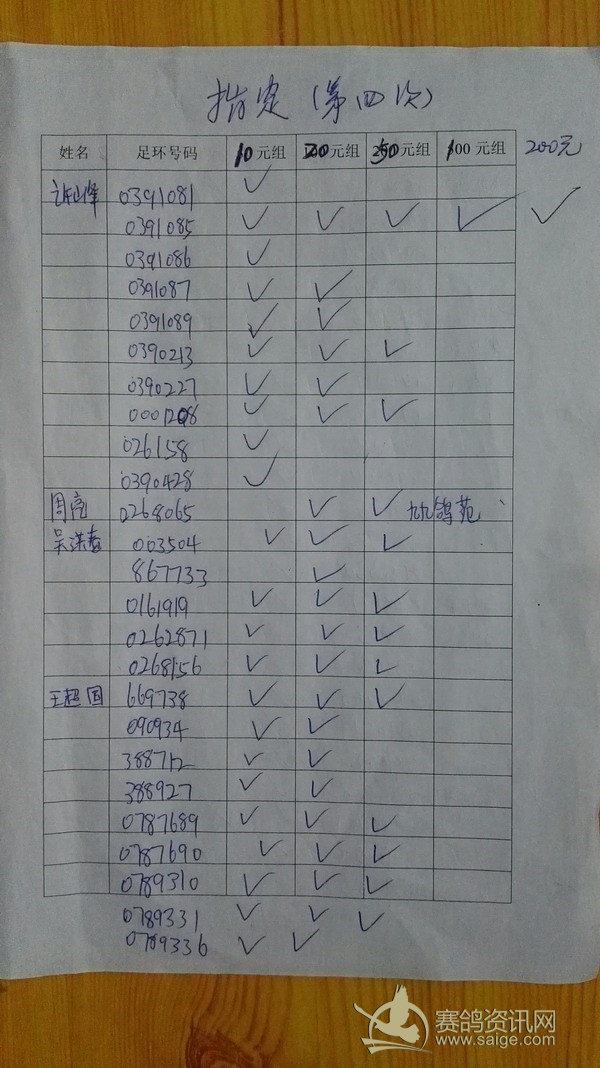 指定(第四次)
姓名 足环号码 10元组 元组 元组 100元组 200元
0391081 ✓
0391085 ✓ ✓ ✓ ✓ ✓
0391086 ✓
0391087 ✓ ✓
0391089 ✓ ✓
0390213 ✓ ✓ ✓
0390227 ✓ ✓
0001208 ✓ ✓ ✓
026158 ✓
0390428 ✓
周亮 0268065 ✓ ✓ 九九鸽苑
003504 ✓ ✓ ✓
867733 ✓
0161919 ✓ ✓ ✓
0262871 ✓ ✓ ✓
0268156 ✓ ✓ ✓
王超国 669738 ✓ ✓ ✓
090934 ✓ ✓
388712 ✓ ✓
388927 ✓ ✓
0787689 ✓ ✓ ✓
0787690 ✓ ✓ ✓
0789310 ✓ ✓ ✓
0789331 ✓ ✓ ✓
0789336 ✓ ✓
赛鸽资讯网
www.saige.com